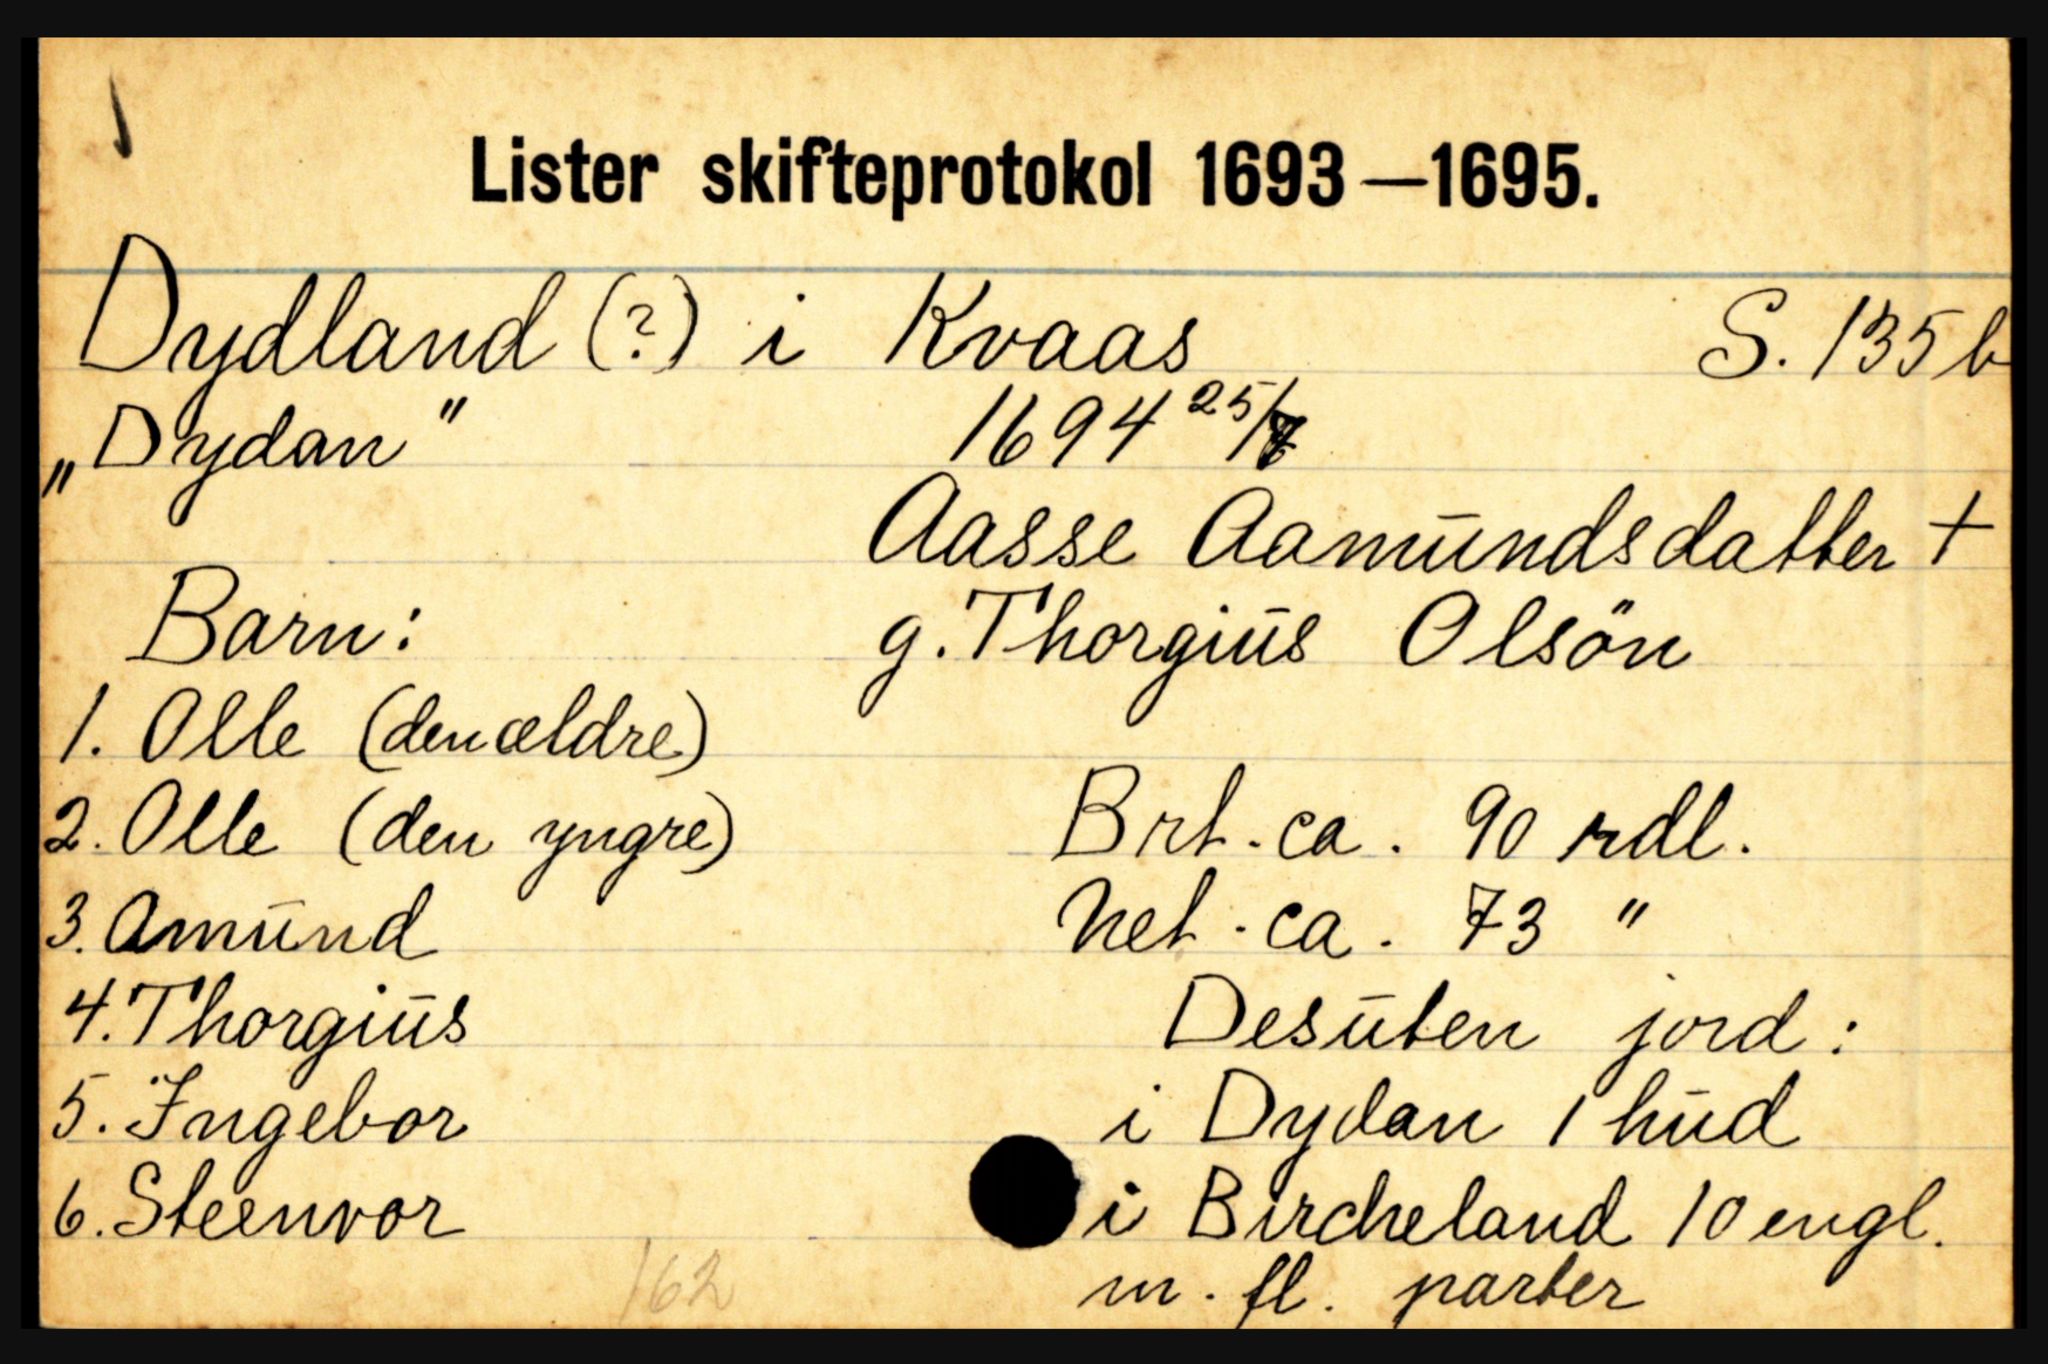 Lister skifteprotokol 1693—1695.
Dydland (?) i Kvaas S. 135b
„Dydan" 1694
Aasse Aamūndsdatter +
Barn: g. Thorgiūs Olsön
1. Olle (den ældre)
2. Olle (den yngre) Brt. ca. 90 rdl.
3. Amūnd Net. ca. 73 "
4. Thorgiūs Desūten jord:
5. Ingebor i Dydan 1 hūd
6. Steenvor i Bircheland 10 engl.
162 m. fl. parter